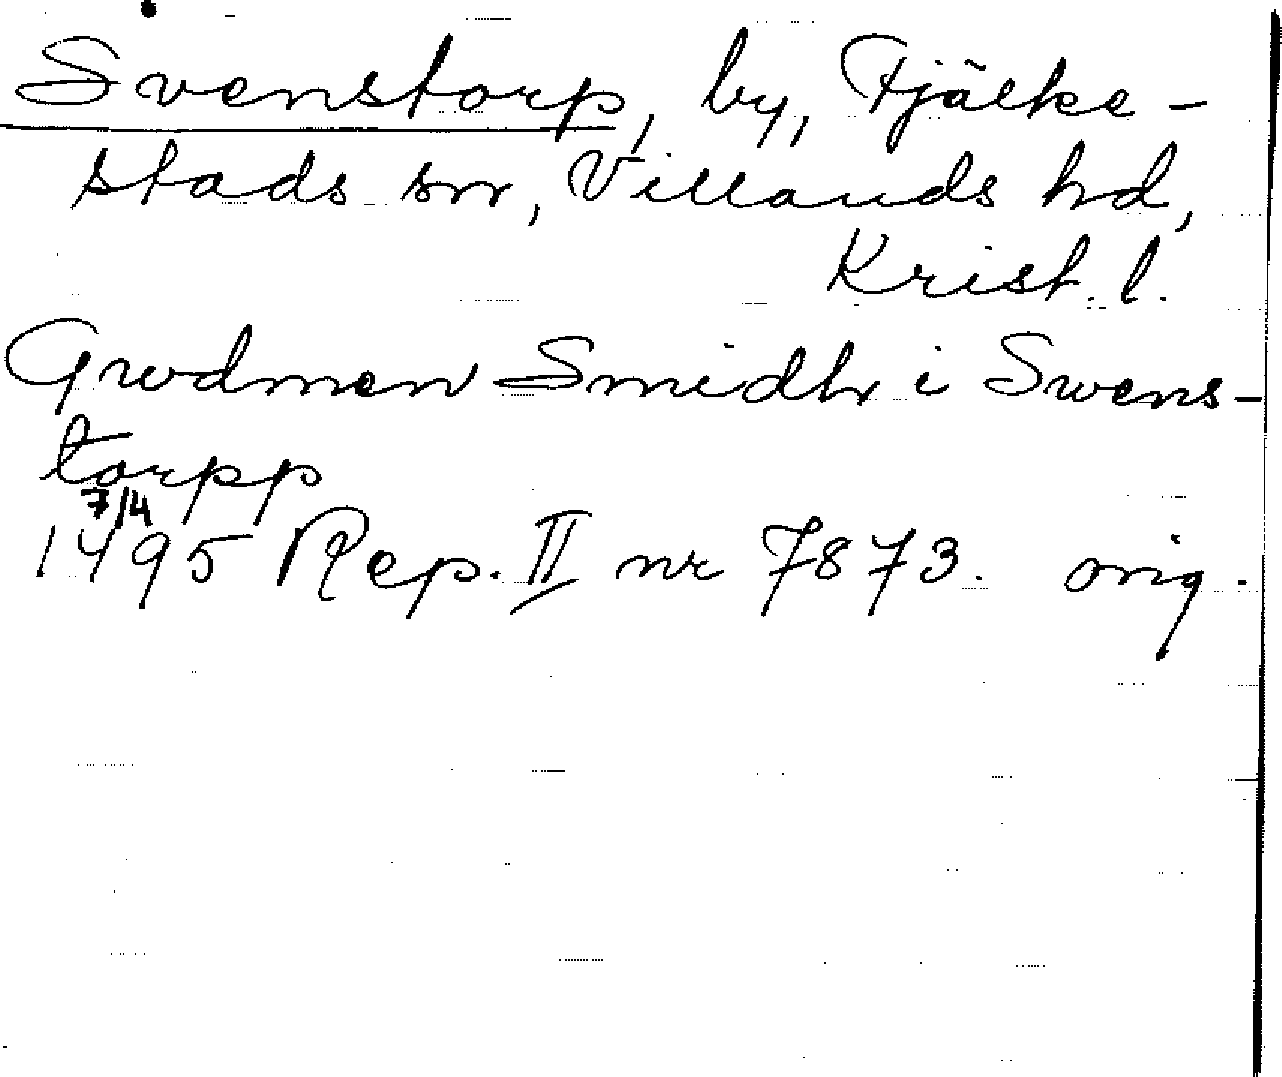 Svenstorp, by, Fjälke-
stads sn, Villands hd,
Krist. l.
Gwdmen Smidhr i Swens-
torpp
7/4
1495 Rep. II nr 7873. orig.